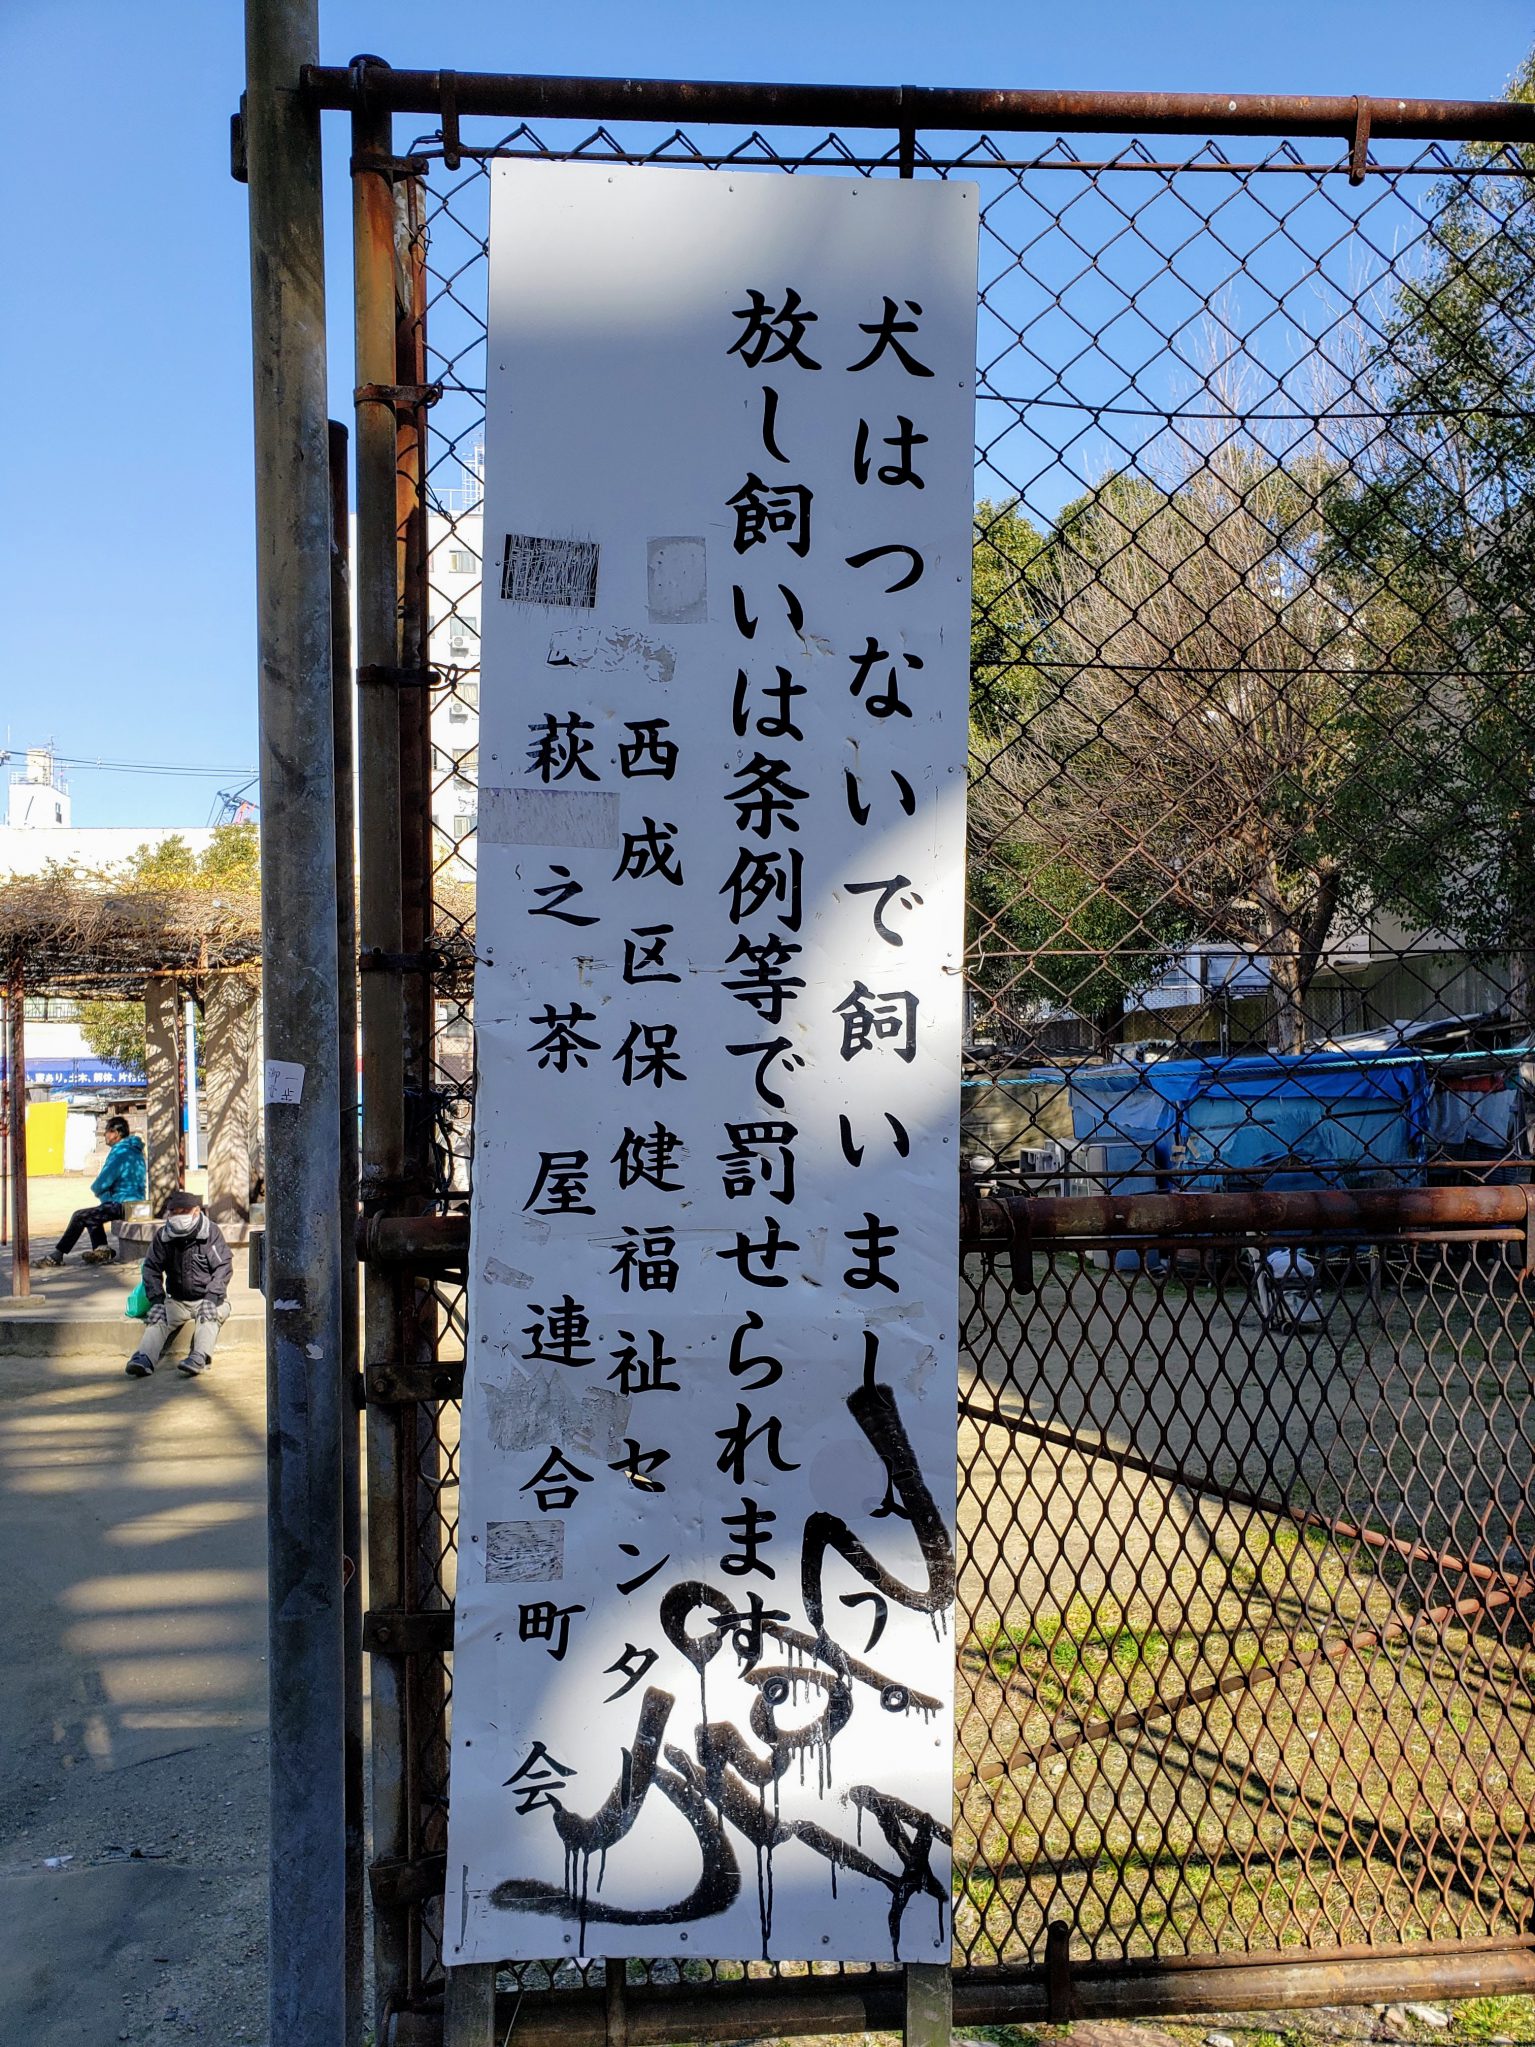 犬はつないで飼いましょう。
放し飼いは条例等で罰せられます。
西成区保健福祉センター
萩之茶屋連合町会